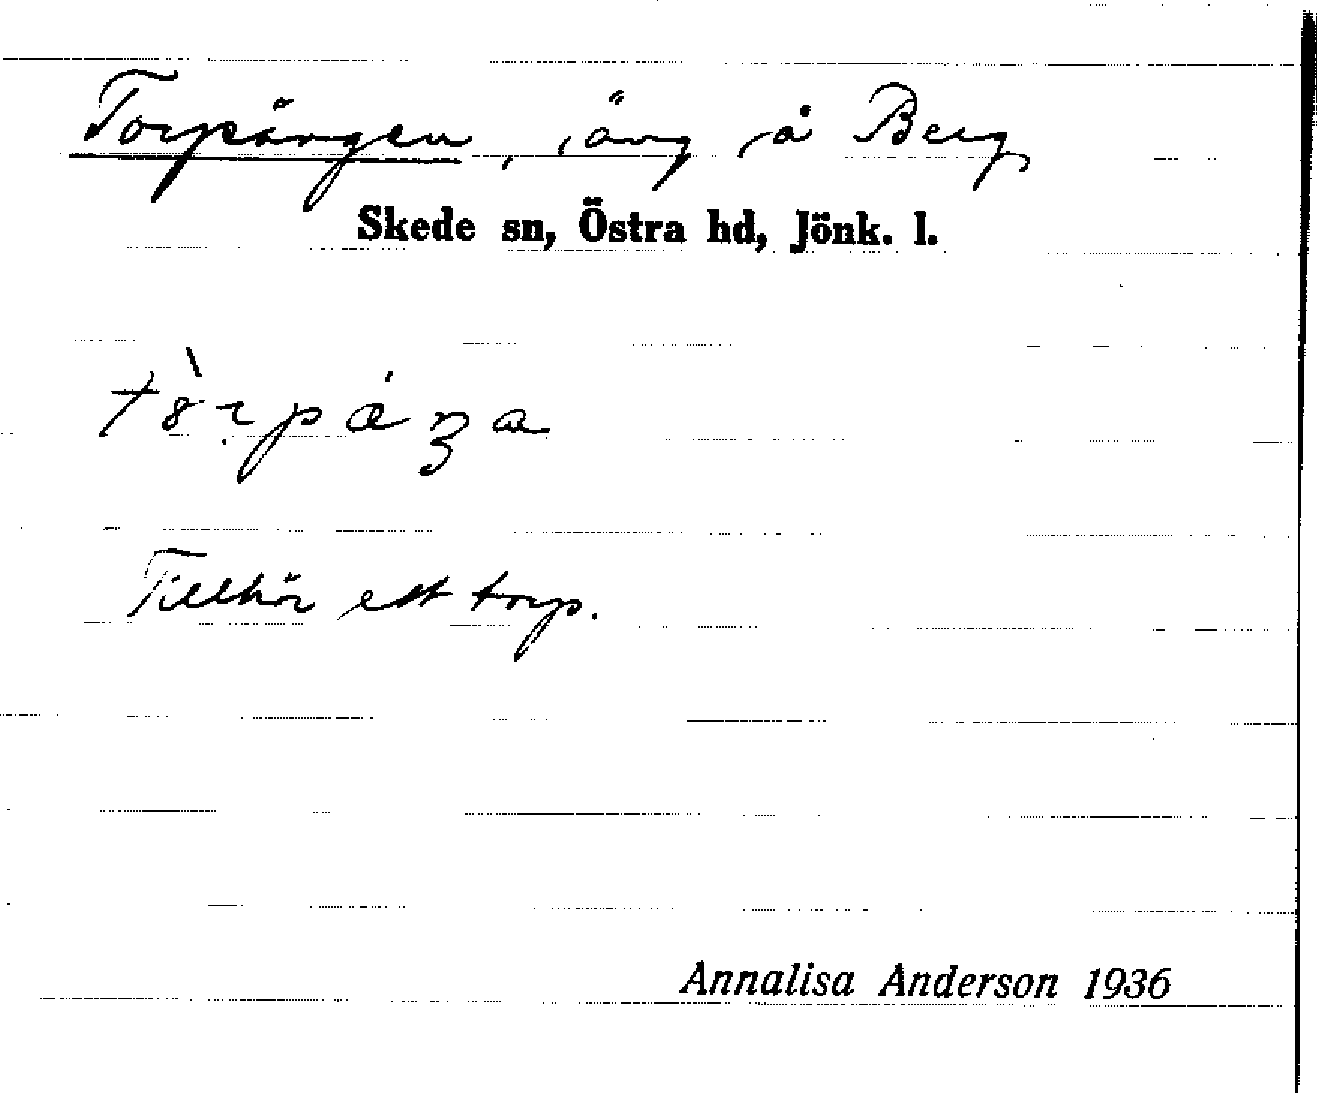 Torpängen, äng å Berg
Skede sn, Östra hd, Jönk. l.
Tillhör ett torp.
Annalisa Anderson 1936